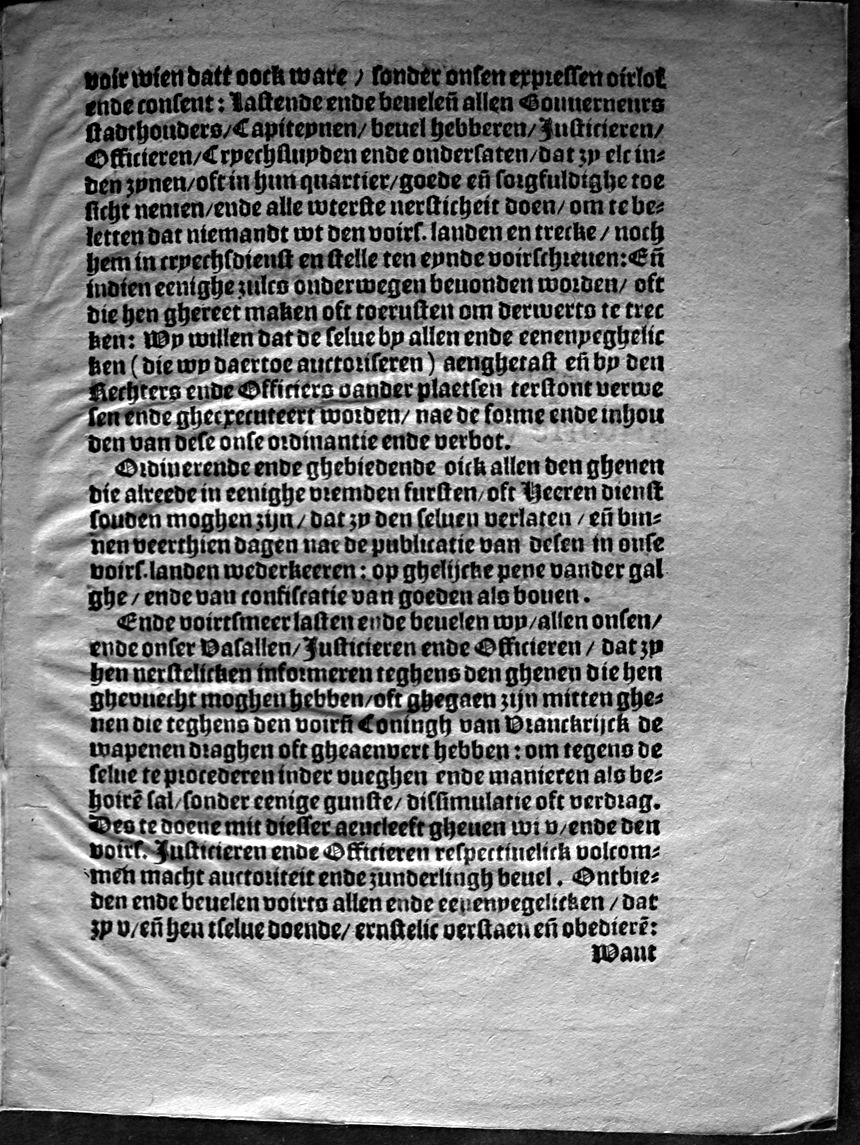 voir wien datt oock ware / sonder onsen expressen oirlof
ende consent: Lastende ende beuelen̄ allen Gouuerneurs
stadthouders/Capiteynen/ beuel hebberen/Justicieren/
Officieren/Crychsluyden ende ondersaten/dat zy elc in⸗
den zynen/oft in hun quartier/goede en̄ sorgfuldighe toe
sicht nemen/ende alle wterste nersticheit doen/ om te be⸗
letten dat niemandt wt den voirs. landen en trecke / noch
hem in crychsdienst en stelle ten eynde voirschreuen: En̄
indien eenighe zulcs onderwegen beuonden worden/ oft
die hen ghereet maken oft toerusten om derwerts te trec
ken: Wy willen dat de selue by allen ende eenenyeghelic
ken (die wy daertoe auctoriseren) aenghetast en̄ by den
Rechters ende Officiers vander plaetsen terstont verwe
sen ende gheexecuteert worden/ nae de forme ende inhou
den van dese onse ordinantie ende verbot.
Ordinerende ende ghebiedende oick allen den ghenen
die alreede in eenighe vremden fursten/oft Heeren dienst
souden moghen zijn / dat zy den seluen verlaten / en̄ bin⸗
nen veerthien dagen nae de publicatie van desen in onse
voirs. landen wederkeeren: op ghelijcke pene vander gal
ghe / ende van confiscatie van goeden als bouen.
Ende voirtsmeer lasten ende beuelen wy/allen onsen/
ende onser Vasallen/Justicieren ende Officieren / dat zy
hen nerstelicken informeren teghens den ghenen die hen
ghevuecht moghen hebben/oft ghegaen zijn mitten ghe⸗
nen die teghens den voirn̄ Coningh van Vranckrijck de
wapenen draghen oft gheaenvert hebben: om tegens de
selue te procederen inder vueghen ende manieren als be⸗
hoirē sal/sonder eenige gunste/ dissimulatie oft verdrag.
Des te doene mit diesser aencleeft gheuen wi v/ende den
voirs. Justicieren ende Officieren respectiuelick volcom⸗
men macht auctoriteit ende zunderlingh beuel. Ontbie⸗
den ende beuelen voirts allen ende eenenyegelicken / dat
zy v/en̄ hen tselue doende/ ernstelic verstaen en̄ obedierē:
Want